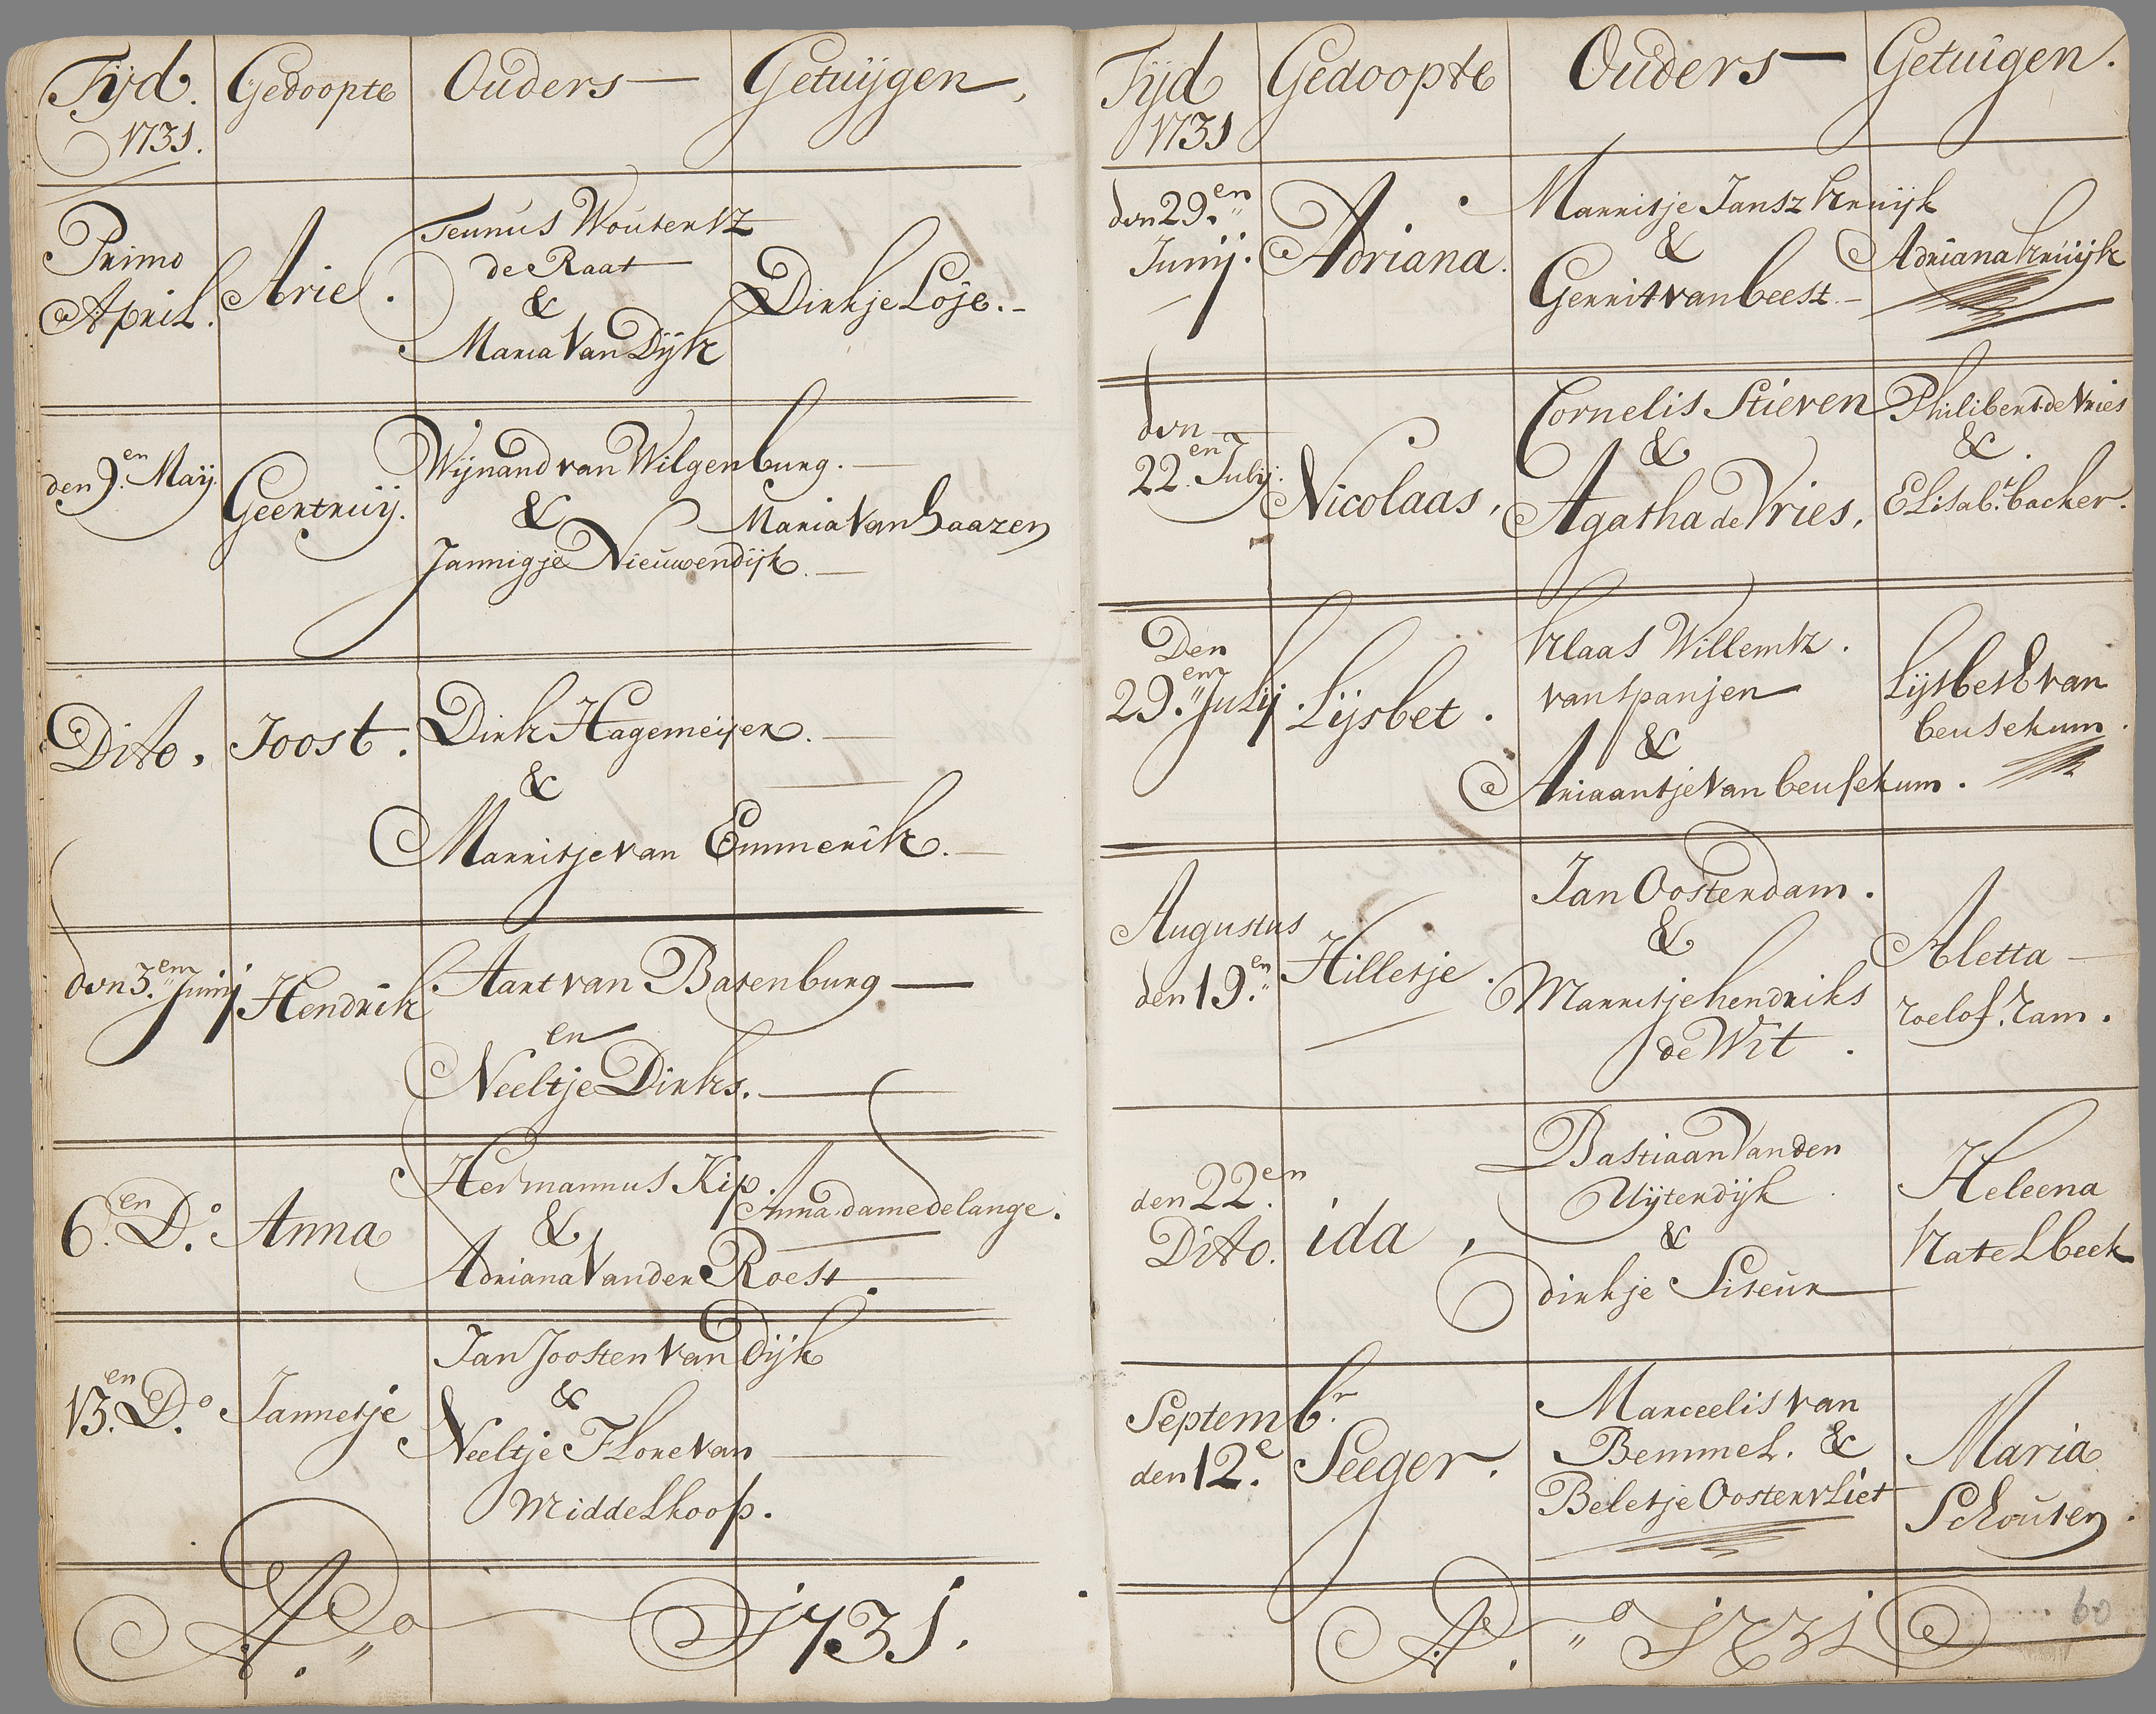 Tijd. Gedoopte Ouders Getuijgen,
1731.
Primo
April.
Arie.
Teunus Woutertz
de Raat
&
Maria Van Dijk
Dirkje Loje.
den 9.en Maij.
Geertruij.
Wijnand van Wilgenburg.
&
Jannigje Nieuwendijk.
Maria Van haazen
Dito,
Joost.
Dirk Hagemeijer.
&
Marritje van Emmerik.
den 3.en Junij
Hendrik
Aart van Batenburg
en
Neeltje Dirks.
6.en D.o
Anna
Hermannus Kip.
&
Adriana Vander Roest.
Anna dame de lange.
13.en D.o
Jannetje
Jan Joosten van Dijk
&
Neeltje Flore van
Middelkoop.
A.o 1731.
Tijd Gedoopte Ouders Getuigen.
1731
den 29.en
Junij.
Adriana.
Marritje Jansz kruijk
&
Gerrit van beest.
Adriana kruijk
den
22.en Julij.
Nicolaas,
Cornelis Stieven
&
Agatha de Vries,
Philibert de Vries
&
Elisab.t backer.
Den
29.en Julij.
Lijsbet.
Klaas Willemtz.
van Spanjen
&
Ariaantje Van beusekum.
Lijsbeth van
beusekum.
Augustus
den 19.en
Hilletje.
Jan Oostendam.
&
Marritje hendriks
de Wit.
Aletta
roelof. ram.
den 22.en
Dito.
ida,
Bastiaan Van den
Uijtendijk
&
dirkje Siteur
Heleena
Katelbeek
Septemb.r
den 12.e
Seeger.
Marceelis van
Bemmel. &
Beletje Oostenvliet
Maria
Schouten.
A.o 1731
60